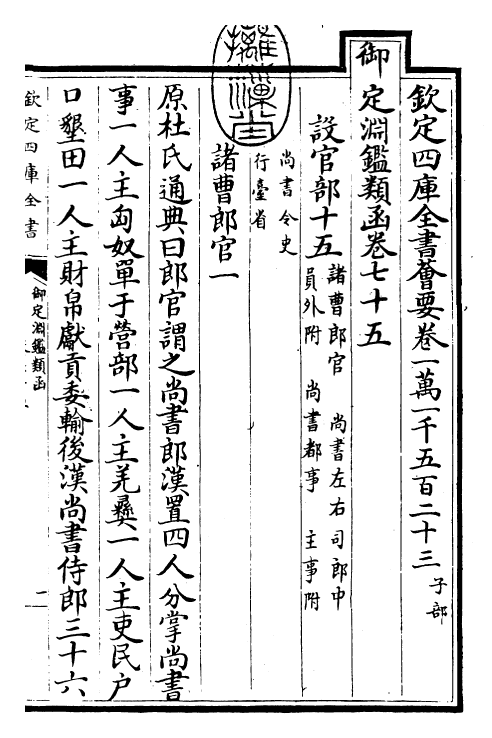 欽定四庫全書薈要卷一萬一千五百二十三 子部
御定淵鑑類函卷七十五
設官部十五 諸曹郎官 尚書左右司郎中
員外附 尚書都事 主事附
尚書令史
行臺省
諸曹郎官一
原杜氏通典曰郎官謂之尚書郎漢置四人分掌尚書
事一人主匈奴單于營部一人主羌彞一人主吏民户
口墾田一人主財帛獻貢委輸後漢尚書侍郎三十六
欽定四庫全書
御定淵鑑類函
一